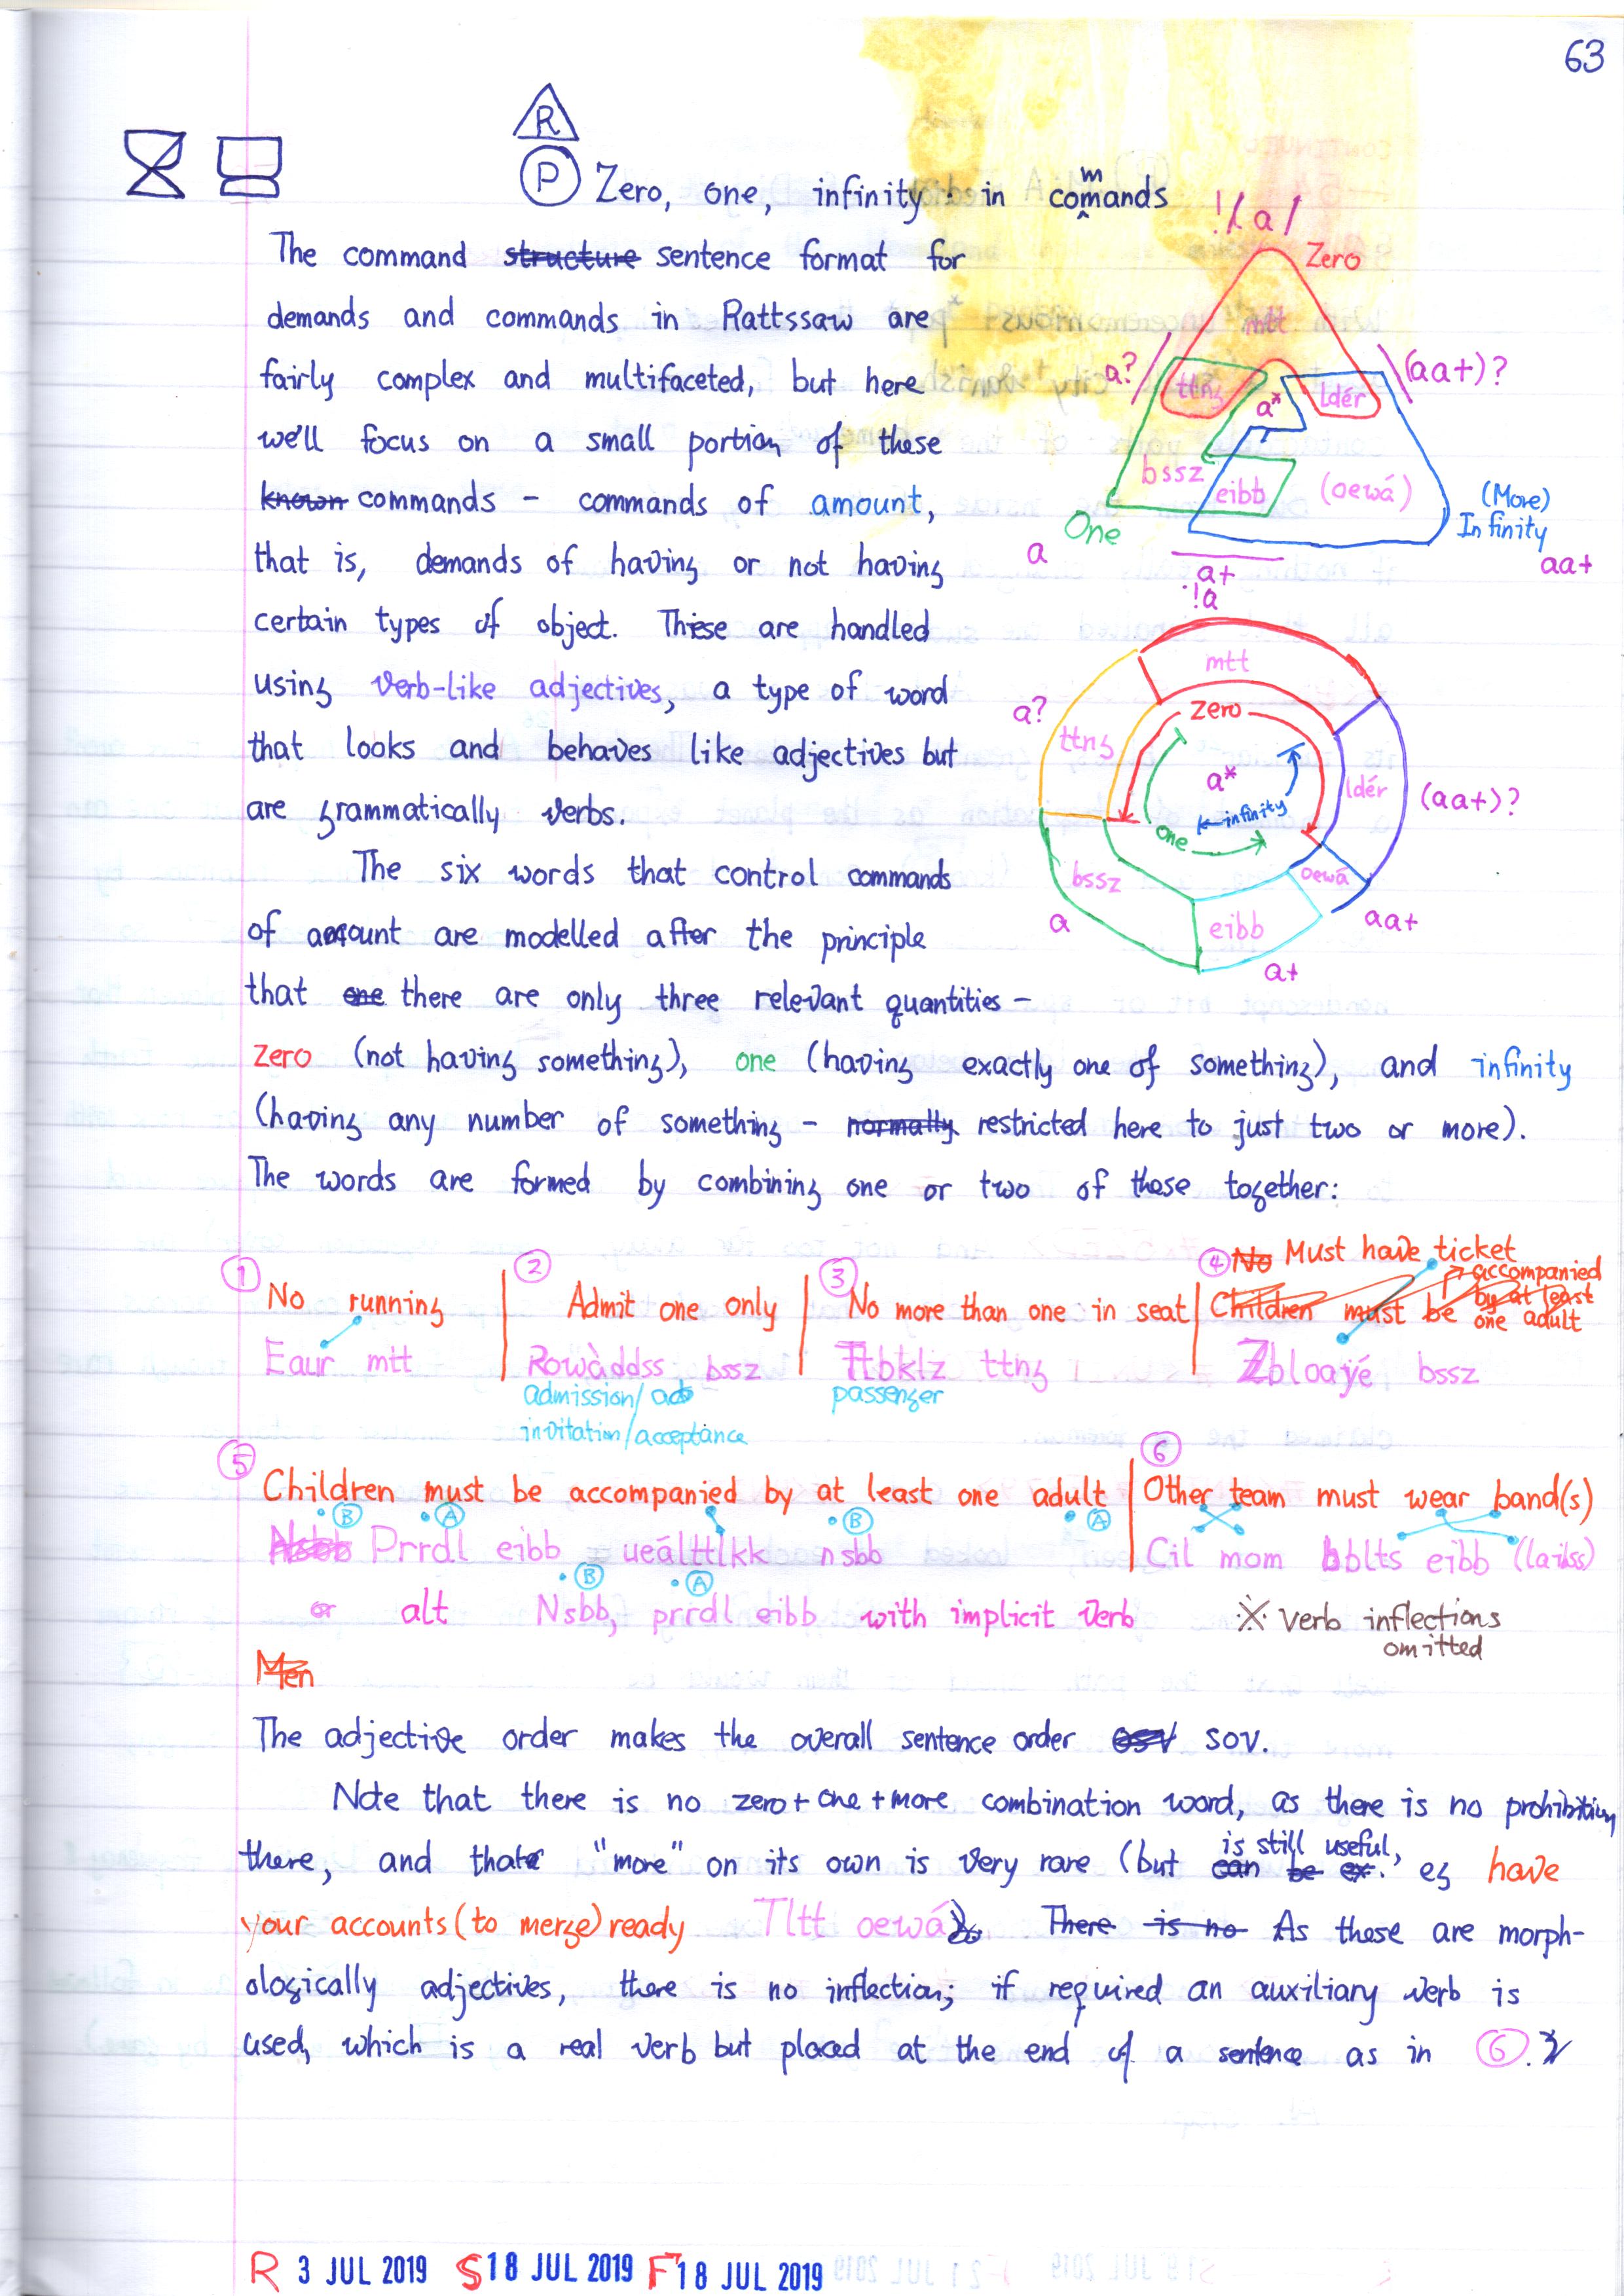 63
R
P Zero, one, infinity in commands
The command structure sentence format for
demands and commands in Rattssaw are
fairly complex and multifaceted, but here
we'll focus on a small portion of these
known commands - commands of amount,
that is, demands of having or not having
certain types of object. These are handled
using verb-like adjectives, a type of word
that looks and behaves like adjectives but
are grammatically verbs.
The six words that control commands
of amount are modelled after the principle
that one there are only three relevant quantities -
zero (not having something), one (having exactly one of something), and infinity
(having any number of something - normally restricted here to just two or more).
The words are formed by combining one or two of these together:
!/a/
Zero
mtt
a?
ttng
a*
ldér
(aa+)?
bssz
eibb
(oewá)
One
a
a+
(More)
Infinity
aa+
!a
mtt
a?
ttng
zero
a*
ldér
(aa+)?
infinity
one
bssz
oewá
a
eibb
aa+
a+
1 No running
Eaur mtt
2 Admit one only
Rowàddss bssz
admission/
invitation/acceptance
3 No more than one in seat
Ttbklz ttng
passenger
4 No Must have ticket
Children must be accompanied
by at least
one adult
Zbloayé bssz
5 Children must be accompanied by at least one adult
B A B A
Nsbb Prrdl eibb ueálttlkk nsbb
B A
or alt Nsbb, prrdl eibb with implicit verb
6 Other team must wear band(s)
Cil mom bblts eibb (lailss)
※ verb inflections
omitted
Men
The adjective order makes the overall sentence order osv sov.
Note that there is no zero + one + more combination word, as there is no prohibition
there, and that "more" on its own is very rare (but can be ex. is still useful, eg have
your accounts (to merge) ready Tltt oewá). There is no As these are morph-
ologically adjectives, there is no inflection; if required an auxiliary verb is
used, which is a real verb but placed at the end of a sentence as in 6.
R 3 JUL 2019 S 18 JUL 2019 F 18 JUL 2019